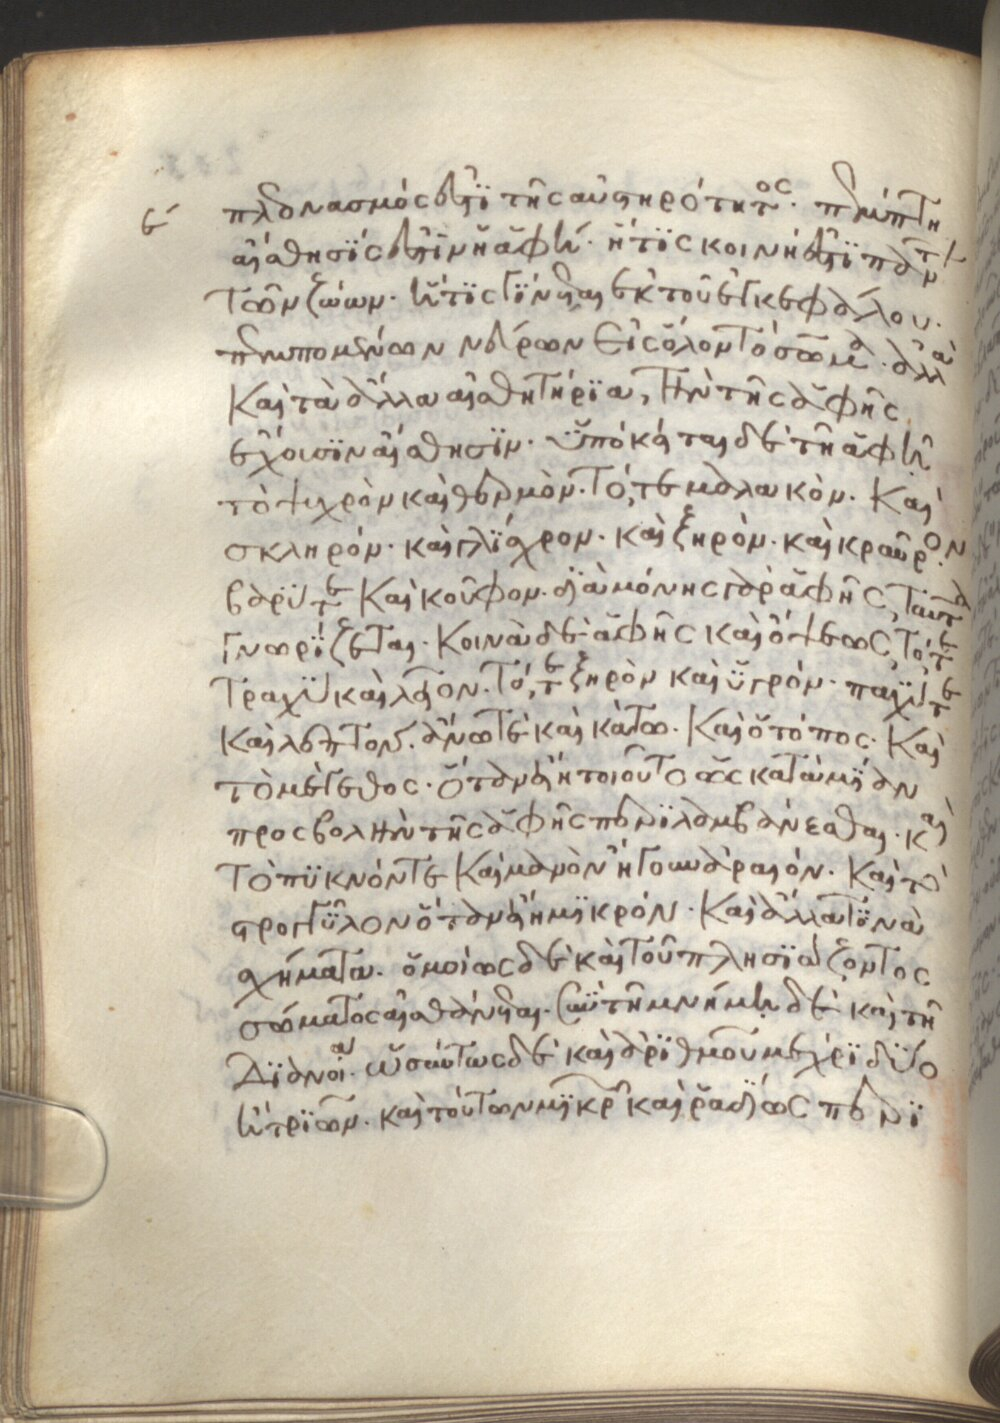 ε´ πλεονασμός ἐστι τῆς αὐστηρότητος· πέμπτη
αἴσθησίς ἐστιν ἡ ἁφή· ἥτις κοινή ἐστι πάντ
των ζώων· ἥτις γίνεται ἐκ τοῦ ἐγκεφάλου·
πεμπομένων νεύρων εἰς ὅλον τὸ σῶμα· ἀλλὰ
καὶ τὰ ἄλλα αἰσθητήρια, τὴν τῆς ἁφῆς
ἔχουσιν αἴσθησιν· ὑπόκειται δὲ τῇ ἁφῇ
τὸ ψυχρὸν καὶ θερμὸν· τό, τε μαλακὸν· καὶ
σκληρόν· καὶ γλίσχρον· καὶ ξηρὸν· καὶ κραῦρον·
βαρύ τε καὶ κοῦφον· διὰ μόνης γὰρ ἁφῆς, ταῦτα
γνωρίζεται· κοινὰ δὲ ἁφῆς καὶ ὄψεως, τό, τε
τραχὺ καὶ λεῖον· τό, τε ξηρὸν καὶ ὑγρόν· παχύ τε
καὶ λεπτόν· ἄνω τε καὶ κάτω· καὶ ὁ τόπος· καὶ
τὸ μέγεθος· ὅταν εἴη τοιοῦτο ὡς κατὰ μίαν
προσβολὴν τῆς ἁφῆς περιλαμβάνεσθαι· καὶ
τὸ πυκνόν τε καὶ μανὸν ἤγουν ἀραιόν· καὶ τὸ
στρογγύλον ὅταν εἴη μικρόν· καὶ ἄλλα τινὰ
σχήματα· ὁμοίως δὲ καὶ τοῦ πλησιάζοντος
σώματος αἰσθάνεται· σὺν τῇ μνήμῃ δὲ καὶ τῇ
διανοίᾳ· ὡσαύτως δὲ καὶ ἀριθμοῦ μέχρι δύο
ἢ τριῶν· καὶ τούτων μικρῶν καὶ ῥαδίως περι